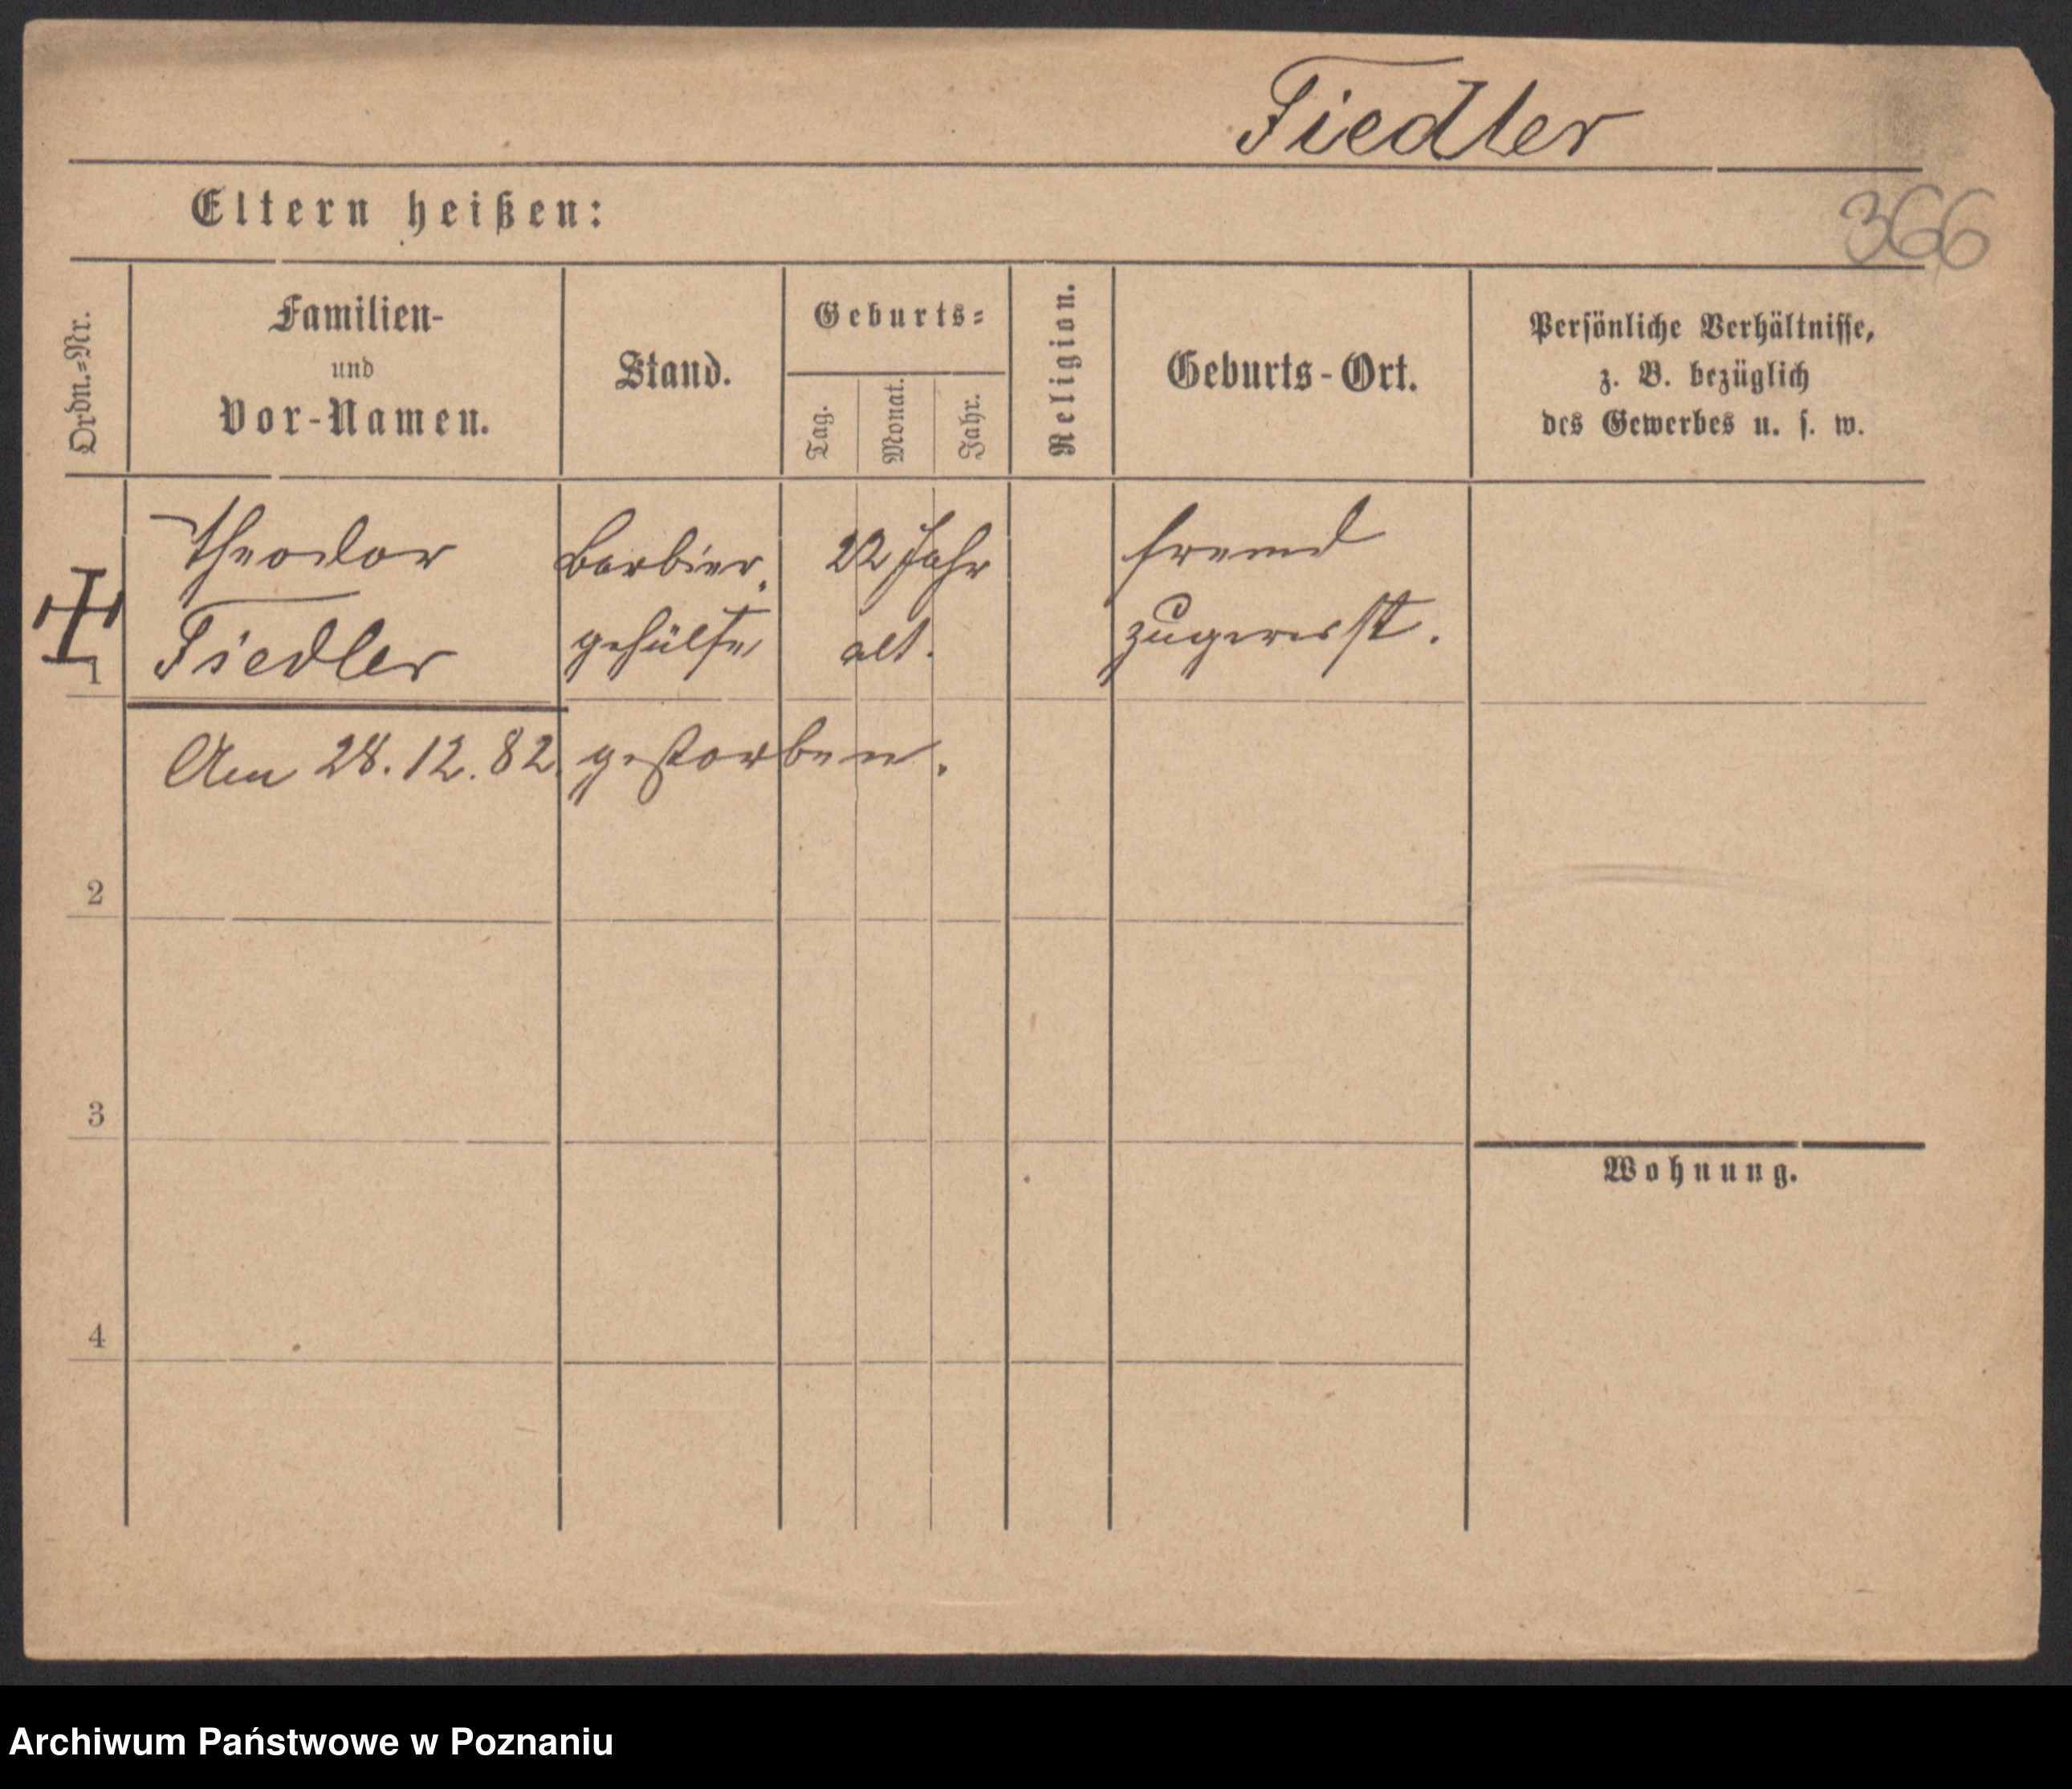 Fiedler
Eltern heißen:
366
Ordn.=Nr.
Familien-
und
Vor-Namen.
Stand.
Geburts=
Tag.
Monat.
Jahr.
Religion.
Geburts-Ort.
Persönliche Verhältnisse,
z. B. bezüglich
des Gewerbes u. s. w.
Theodor Barbier 22 Jahr fremd
Fiedler gehülfe alt. zugereist.
1
Am 28.12.82. gestorben.
2
3
Wohnung.
4
Archiwum Państwowe w Poznaniu